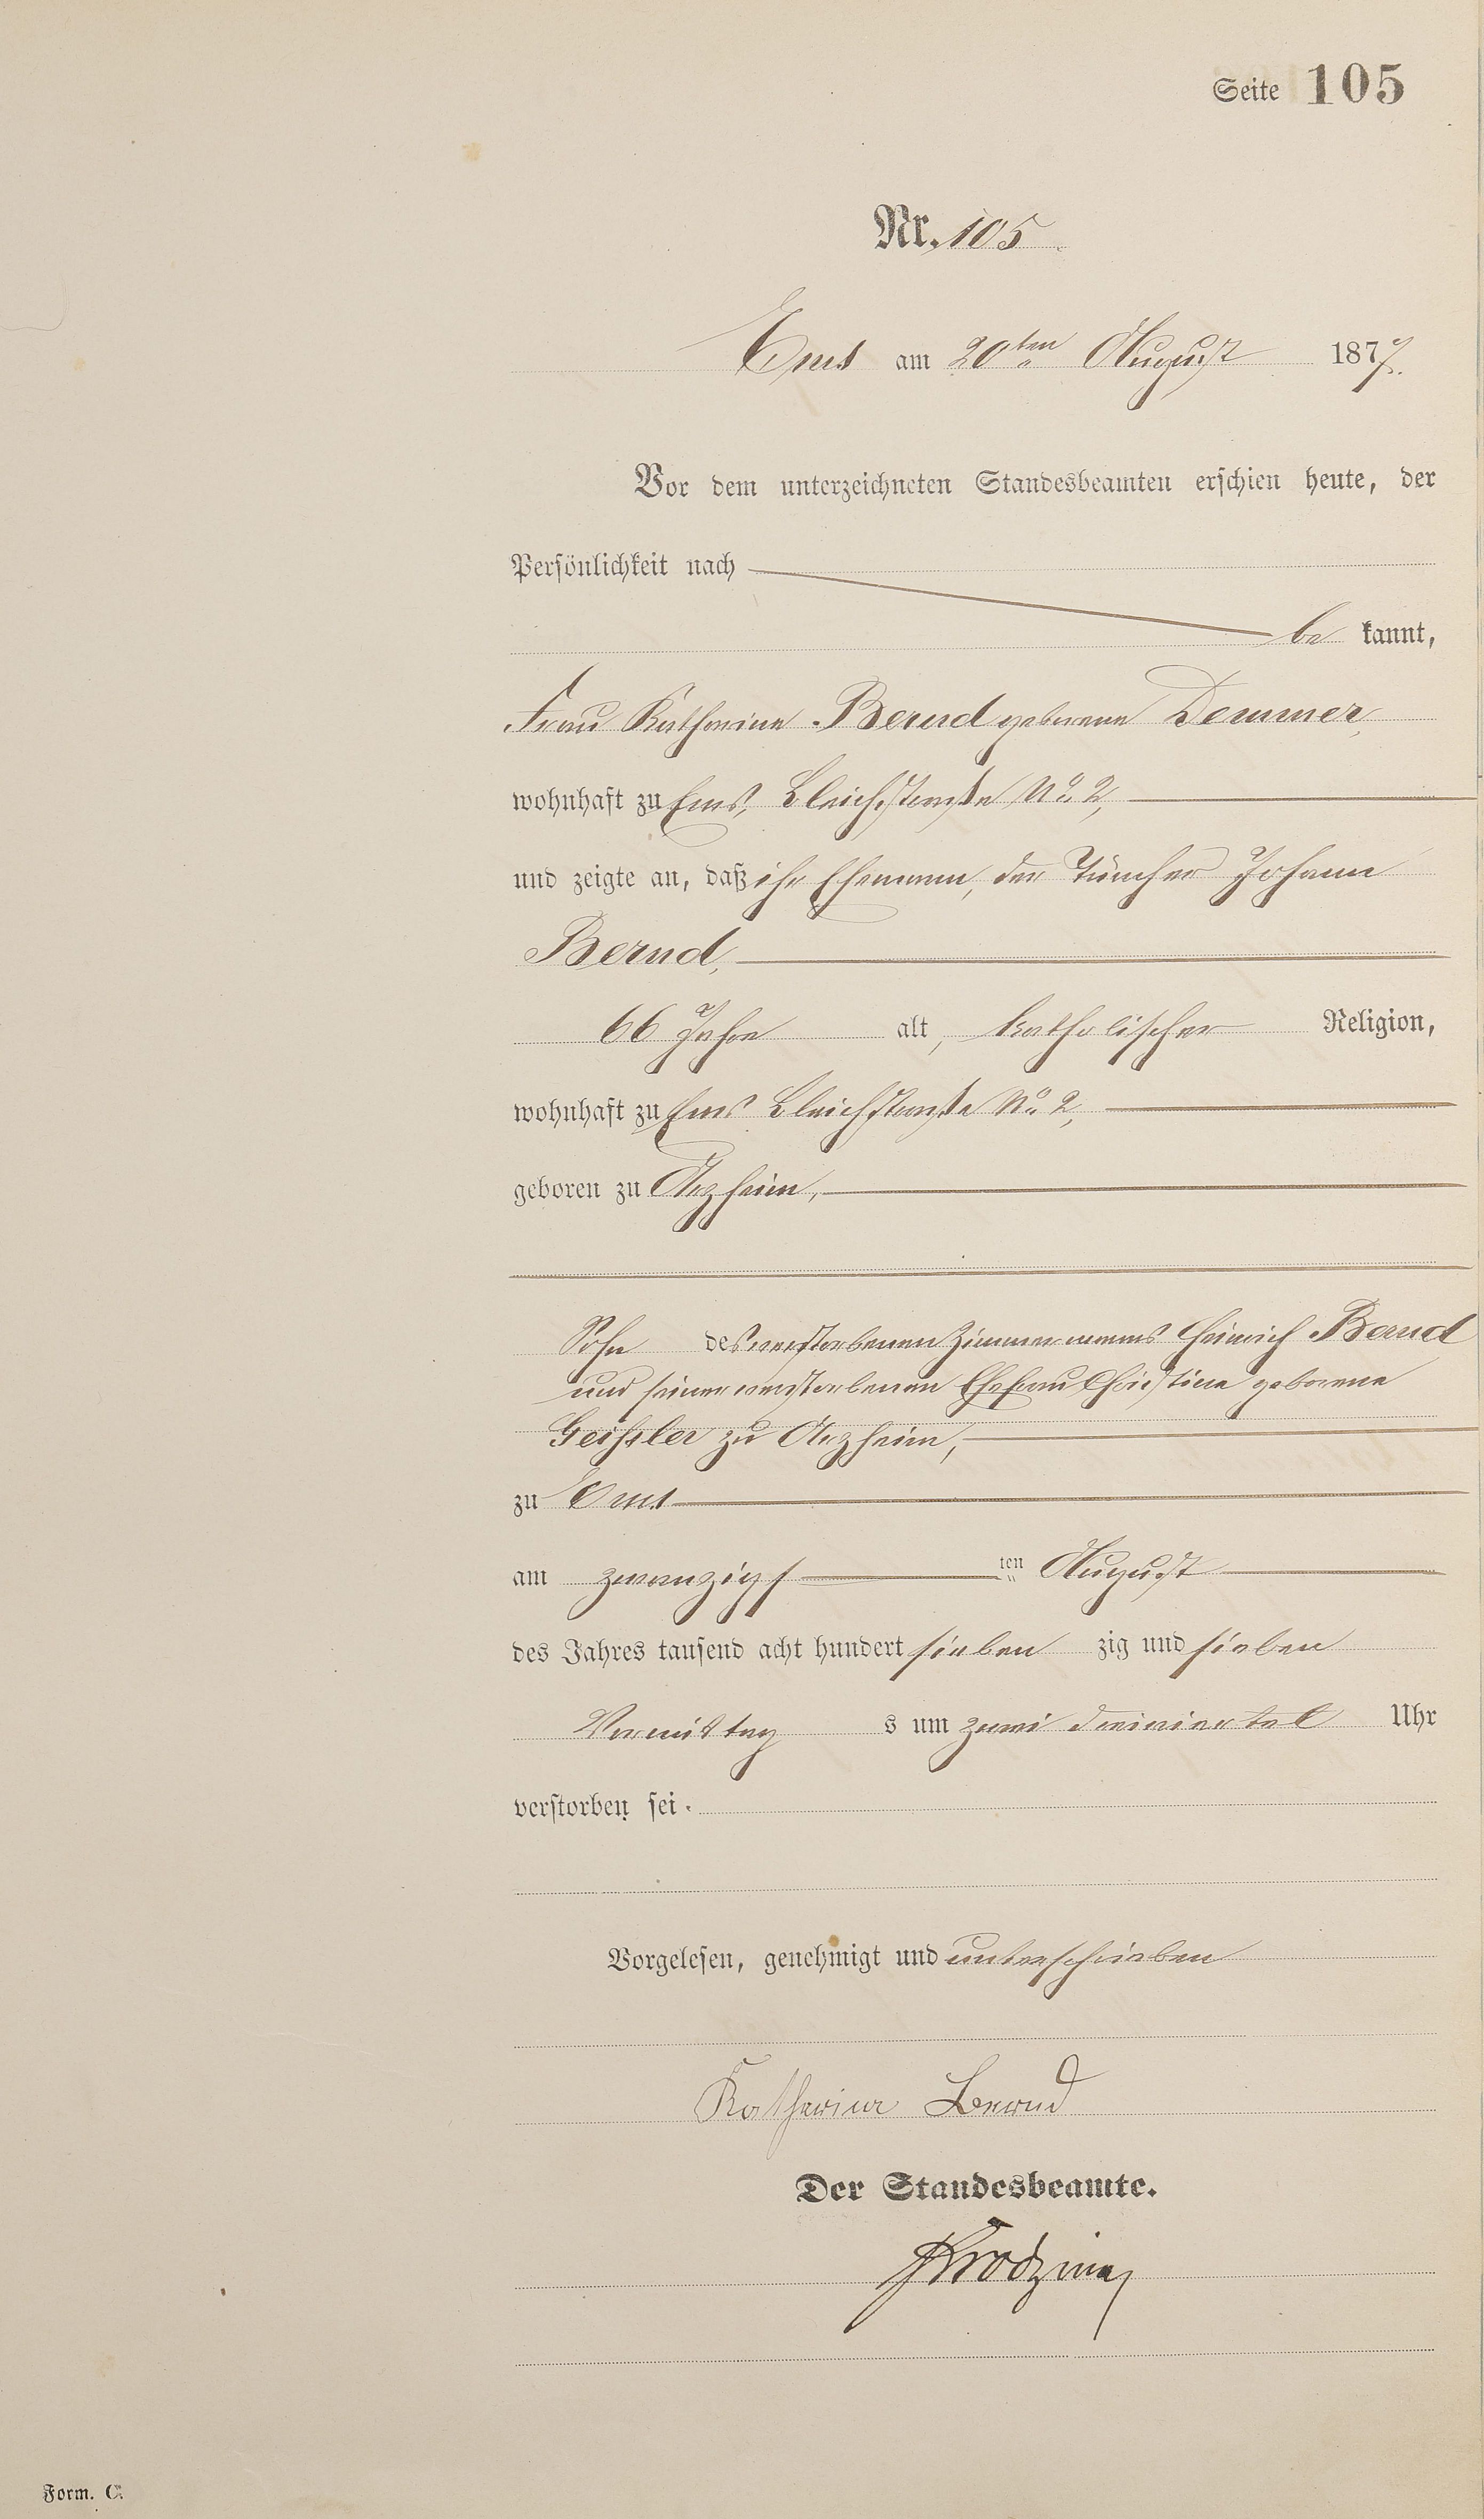 Seite 105
Nr. 105
Ems am 20ten August 1877.
Vor dem unterzeichneten Standesbeamten erschien heute, der
Persönlichkeit nach
be kannt,
Frau Katharine Bernd geborene Demmer,
wohnhaft zu Ems, Bleichstraße No. 2,
und zeigte an, daß ihr Ehemann, der Tüncher Johann
Bernd,
66 Jahre alt, katholischer Religion,
wohnhaft zu Ems Bleichstraße No. 2,
geboren zu Arzheim,
Sohn des verstorbenen Zimmermanns Heinrich Bernd
und seiner verstorbenen Ehefrau Christine geborene
Geißler zu Arzheim,
zu Ems
am zwanzigsten August
des Jahres tausend acht hundert sieben zig und sieben
Vormittag s um zwei dreiviertel Uhr
verstorben sei.
Vorgelesen, genehmigt und unterschrieben
Katharina Bernd
Der Standesbeamte.
Form. C.